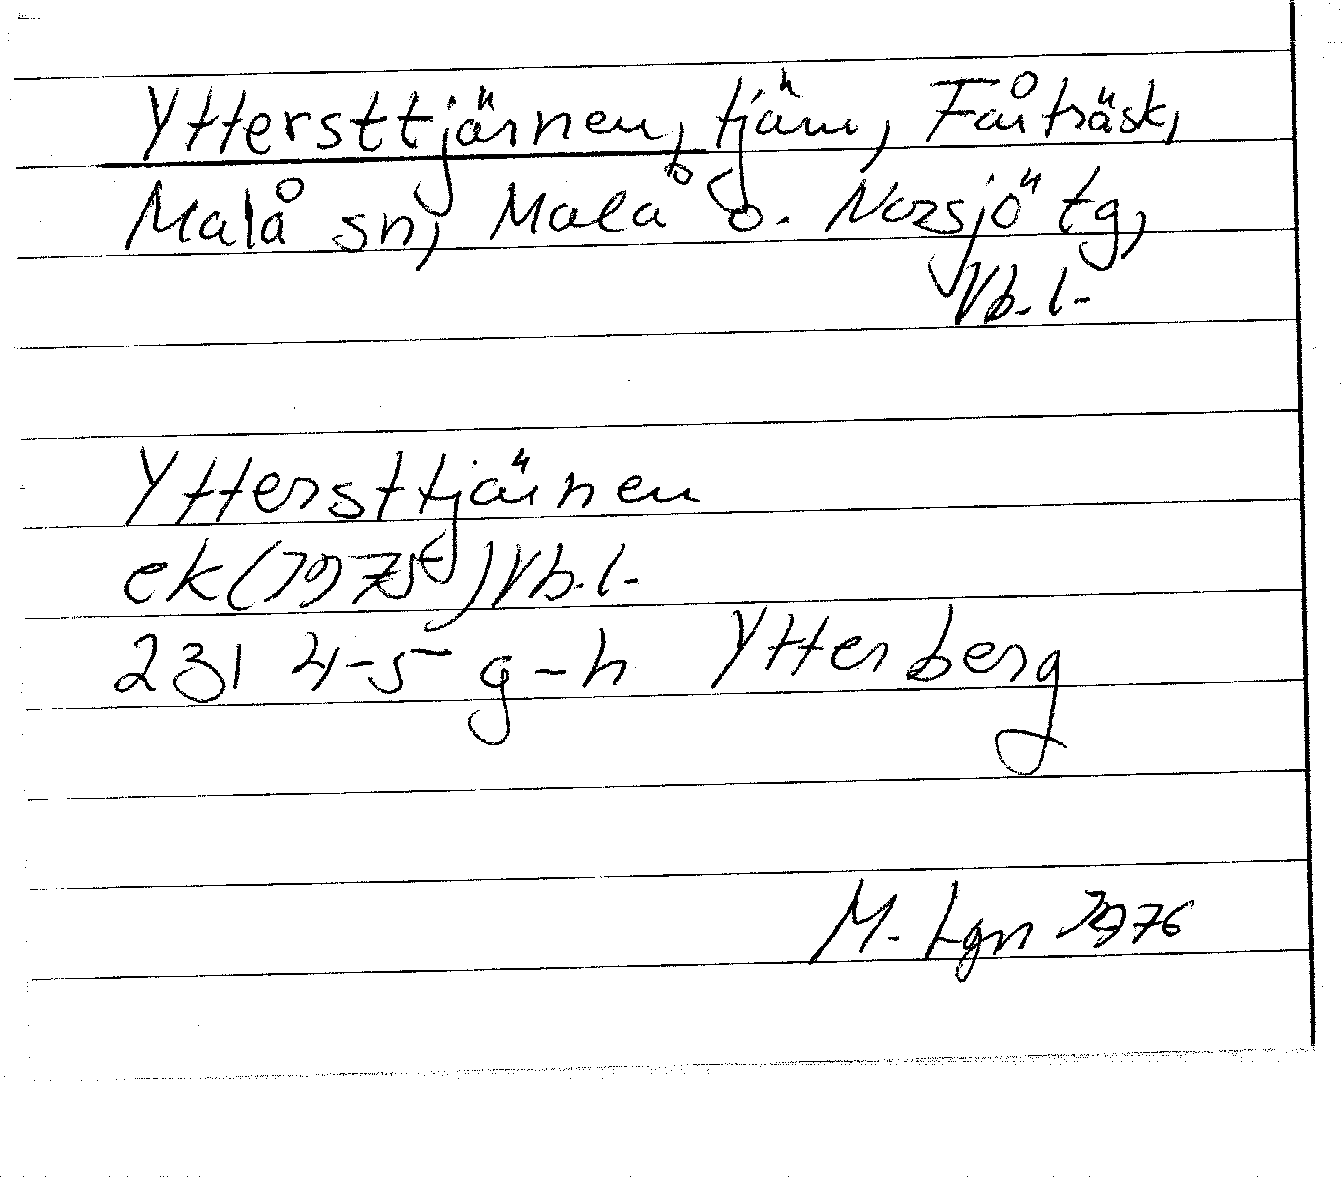 Yttersttjärnen, tjärn, Fårträsk,
Malå sn, Malå o. Norsjö tg,
Vb. l.
Yttersttjärnen
ek (1975) Vb. l.
231 4-5 g-h Ytterberg
M. Lgn 1976